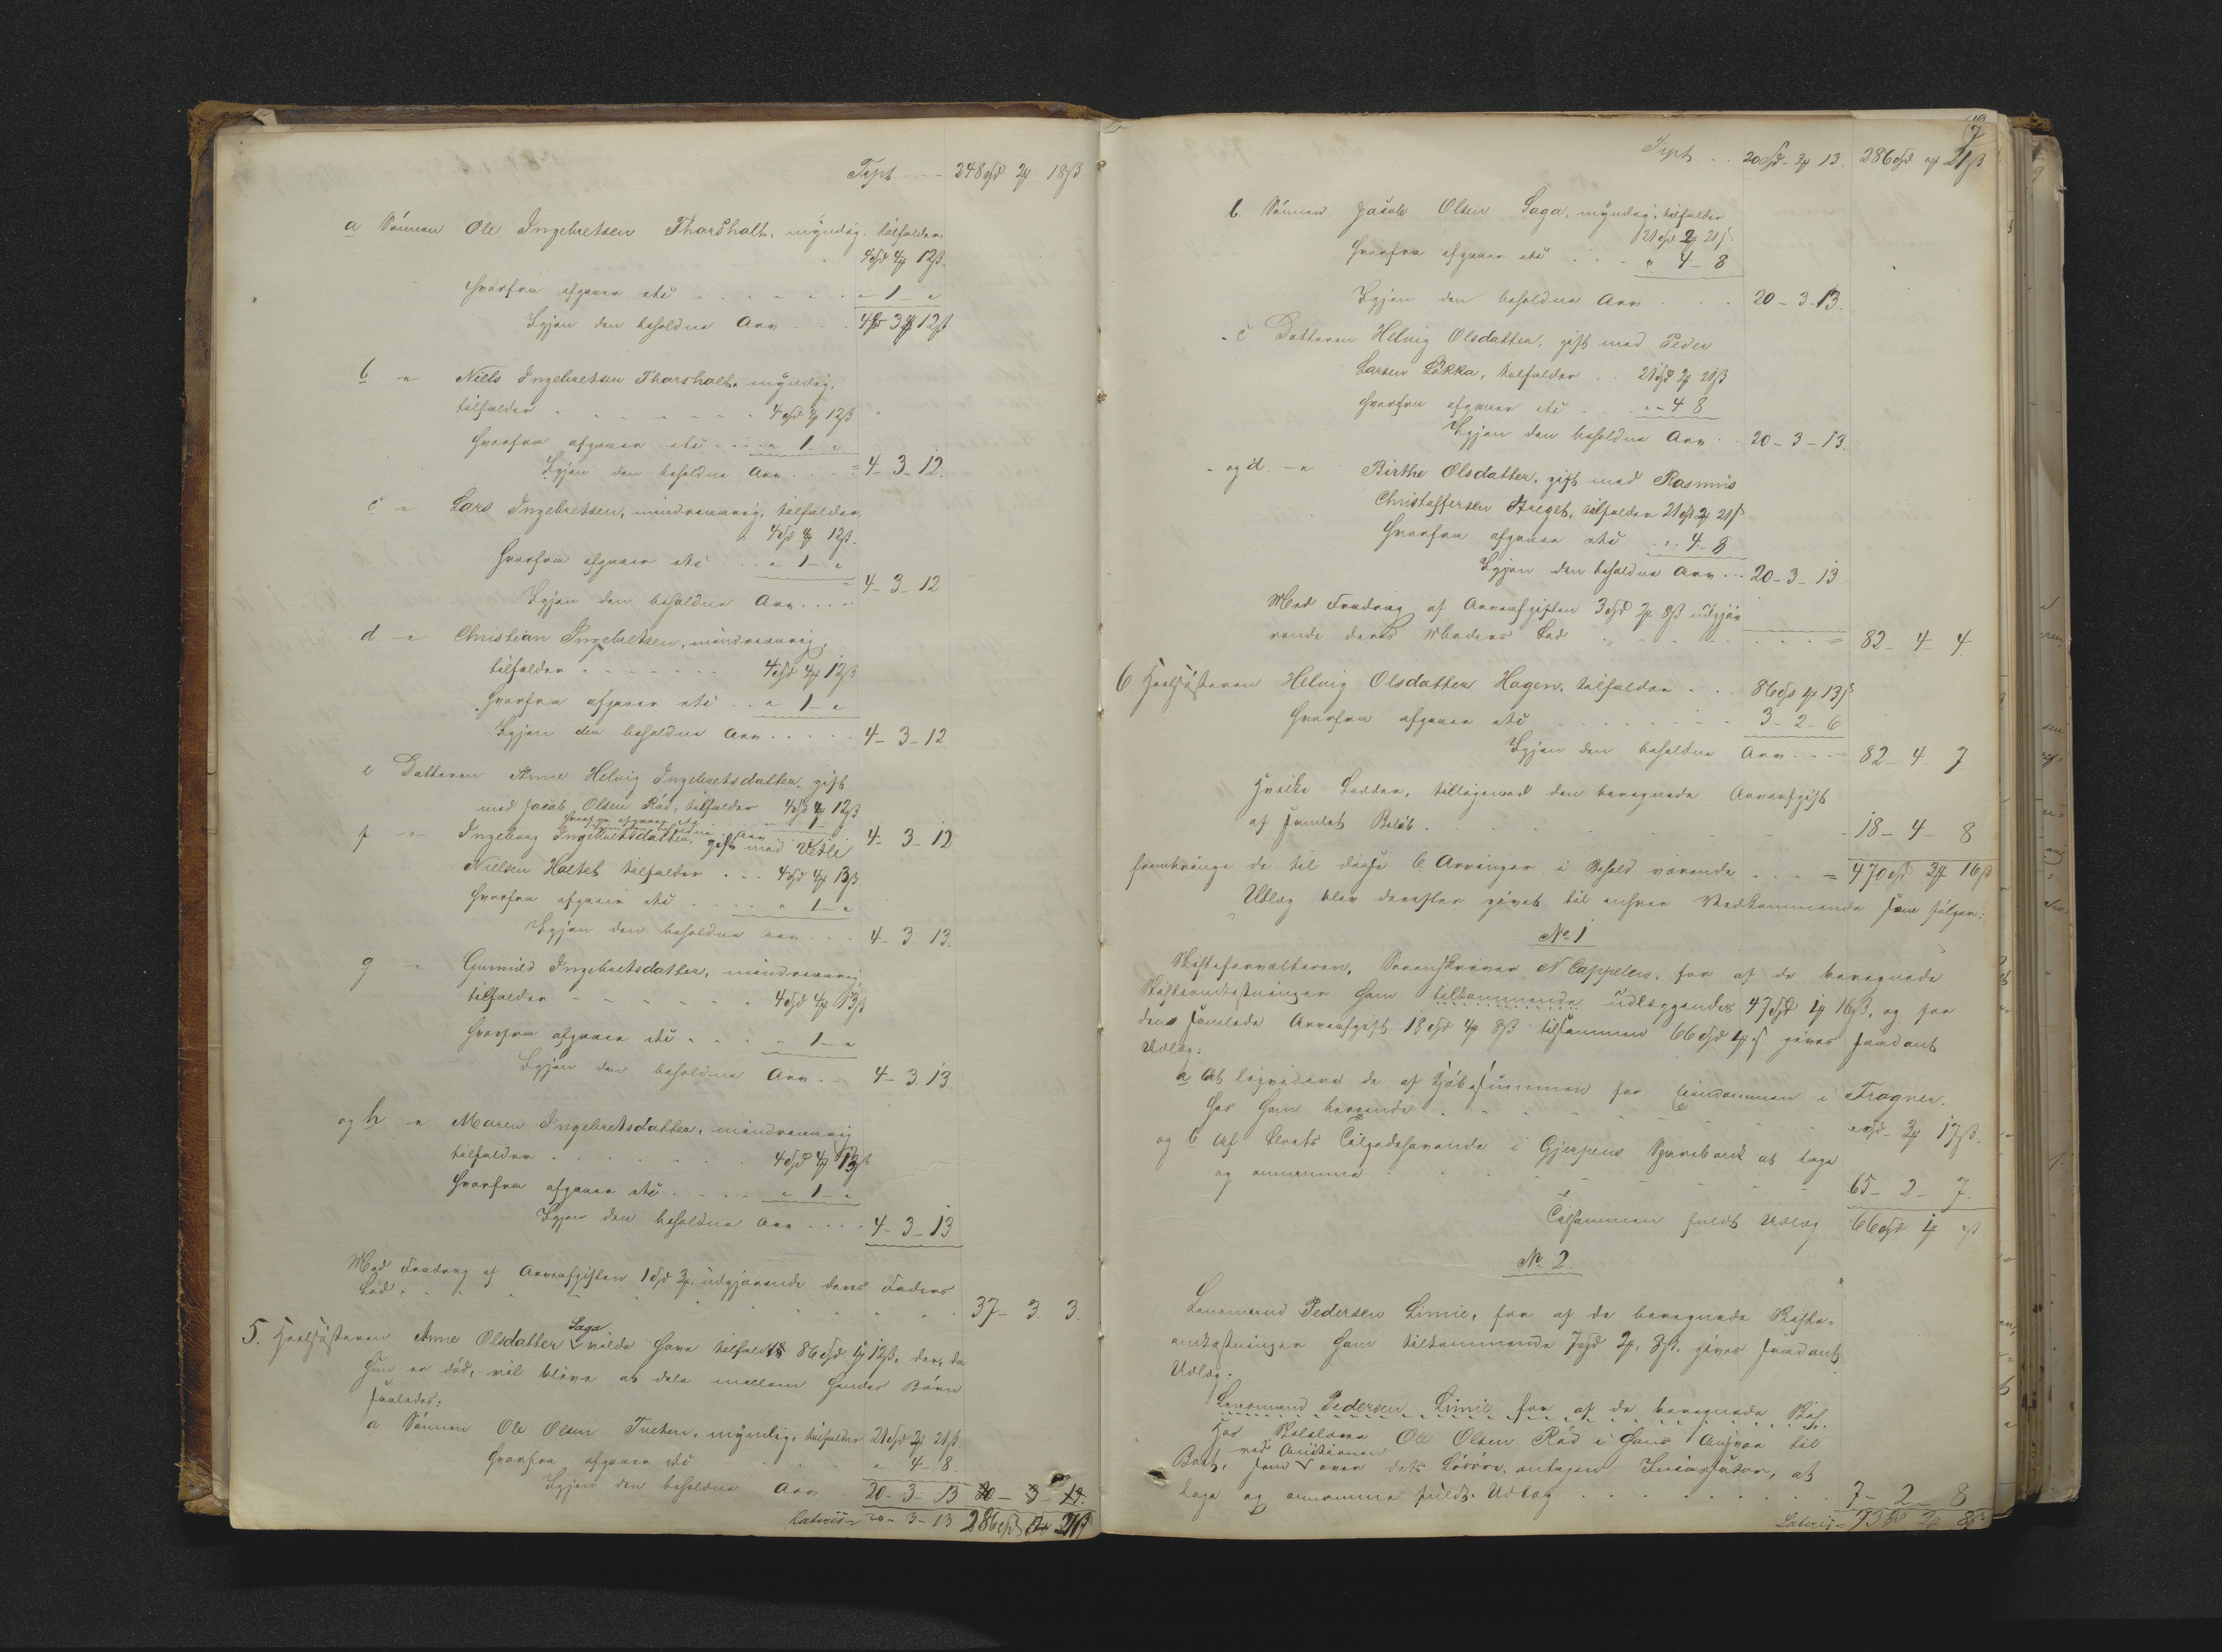 Trspt. . . 248 Spd 2 ℳ 18 ß
a Sönnen Ole Ingebretsen Tharsholt, myndig, tilfalder
4 Spd 4 ℳ 12 ß.
hvorfra afgaaer etc . . . . . . " - 1 - "
Igjen den beholdne Arv . . . 4 - 3 ℳ 12 ß
b - " Niels Ingebretsen Tharsholt, myndig,
tilfalder . . . . . . . 4 Spd 4 ℳ 12 ß
hvorfra afgaaer etc . . . " 1 - "
Igjen den beholdne Arv . . . = 4 - 3 - 12.
c - " Lars Ingebretsen, mindreaarig, tilfalder
4 Spd 4 ℳ 12 ß.
hvorfra afgaaer etc . . . " 1 - "
Igjen den beholdne Arv . . . . = 4 - 3 - 12
d - " Christian Ingebretsen, mindreaarig,
tilfalder . . . . . . . 4 Spd 4 ℳ 12 ß
hvorfra afgaaer etc . . " 1 - "
Igjen den beholdne Arv . . . . . 4 - 3 - 12
e Datteren Anne Helvig Ingebretsdatter, gift
med Jacob Olsen Röd, tilfalder 4 Spd 4 ℳ 12 ß
hvorfra afgaaer etc . . . " - 1 - "
Igjen den beholdne Arv 4 - 3 - 12
f - " Ingeborg Ingebretsdatter, gift med Vetle
Nielsen Holtet tilfalder . . . 4 Spd 4 ℳ 13 ß
hvorfra afgaaer etc . . . . " 1 - "
Igjen den beholdne Arv . . . 4 - 3 13.
g - " Gunnild Ingebretsdatter, mindreaarig
tilfalder - - - - - - 4 Spd 4 ℳ 13 ß
hvorfra afgaaer etc . . . " 1 - "
Igjen den beholdne Arv . . 4 - 3 13.
og h - " Maren Ingebretsdatter, mindreaarig
tilfalder . . . . . . . 4 Spd 4 ℳ 13 ß
hvorfra afgaaer etc . . . . " 1 - "
Igjen den beholdne Arv . . . . 4 - 3 - 13
Med Fradrag af Arveafgiften 1 Spd 3 ℳ. udgjørende deres Faders
Lod . . . . . . . . . 37 - 3. 3.
5. Helsösteren Anne Olsdatter Saga vilde have tilfaldt 86 Spd 1 ℳ 12 ß, der, da
hun er död, vil blive at dele mellem hendes Börn
saaledes:
a Sönnen Ole Olsen Tveten, myndig, tilfalder 21 Spd 2 ℳ 21 ß.
hvorfra afgaaer etc . . . " 4 - 8.
Igjen den beholdne Arv 20 - 3 - 13 20 - 3 - 13.
Lateris 20 - 3 - 13 286 Spd " ℳ 21 ß
7
Trspt . . 20 Spd - 3 ℳ 13. 286 Spd " ℳ 21 ß
b. Sönnen Jacob Olsen Saga, myndig, tilfalder
21 Spd 2 ℳ 21 ß
hvorfra afgaaer etc . . . " 4 - 8
Igjen den beholdne Arv . . . 20 - 3 - 13.
- c Datteren Helvig Olsdatter, gift med Peder
Larsen Løkka, tilfalder . . 21 Spd 2 ℳ 21 ß
hvorfra afgaaer etc . . " - 4 8
Igjen den beholdne Arv . . 20 - 3 - 13.
- og d. - " Birthe Olsdatter, gift med Rasmus
Christoffersen tilfalder 21 Spd 2 ℳ 21 ß
hvorfra afgaaer etc . . " 4 - 8
Igjen den beholdne Arv . . . 20 - 3 - 13
Med Fradrag af Arveafgiften 3 Spd 2 ℳ 8 ß udgjö-
rende deres Moders Lod . . . . . = 82 - 4 - 4.
6 Helsösteren Helvig Olsdatter Hagen, tilfalder . . . 86 Spd 1 ℳ 13 ß
hvorfra afgaaer etc . . . . . . . 3 - 2 - 6
Igjen den beholdne Arv . . . = 82 - 4 - 7
Hvilke Lodder, tilligemed den beregnede Arveafgift
af samlet Belöb . . . . . . . 18 - 4 - 8
frembringe de til disse 6 Arvinger i Behold værende . . . . = 470 Spd 3 ℳ 16 ß
Udlæg blev derefter givet til enhver Vedkommende som fölger:
No 1
Skifteforvalteren, Sorenskriver N Cappelen, for af de beregnede
Skifteomkostninger ham tilkommende udlæggendes 47 Spd 1 ℳ 16 ß, og for
den samlede Arveafgift 18 Spd 4 ℳ 8 ß tilsammen 66 Spd 1 ℳ " ß gives saadant
Udlæg:
a At liqvidere de af Kjöbesummen for Eiendommen i Fragner.
hos ham beroende . . . . . . . . " Spd - 3 ℳ 17 ß.
og b Af Boets Tilgodehavende i Gjerpens Sparebank at tage
og annamme . . . . . . . 65 - 2 - 7.
Tilsammen fuldt Udlæg 66 Spd 1 ℳ " ß
No 2.
Lensmand Pedersen Limie, for af de beregnede Skifte-
omkostninger ham tilkommende 7 Spd 2 ℳ. 8 ß, gives saadant
Udlæg.
Lensmand Pedersen Limie for af de beregnede Skif.
Hos Ole Olsen Röd i hans Ansvar til
Boet, som ved Auctionen over dets Lösöre antagen Incassator, at
tage og annamme fuldt Udlæg . . . . . . . . 7 - 2 - 8
Lateris = 73 Spd 3 ℳ 8 ß